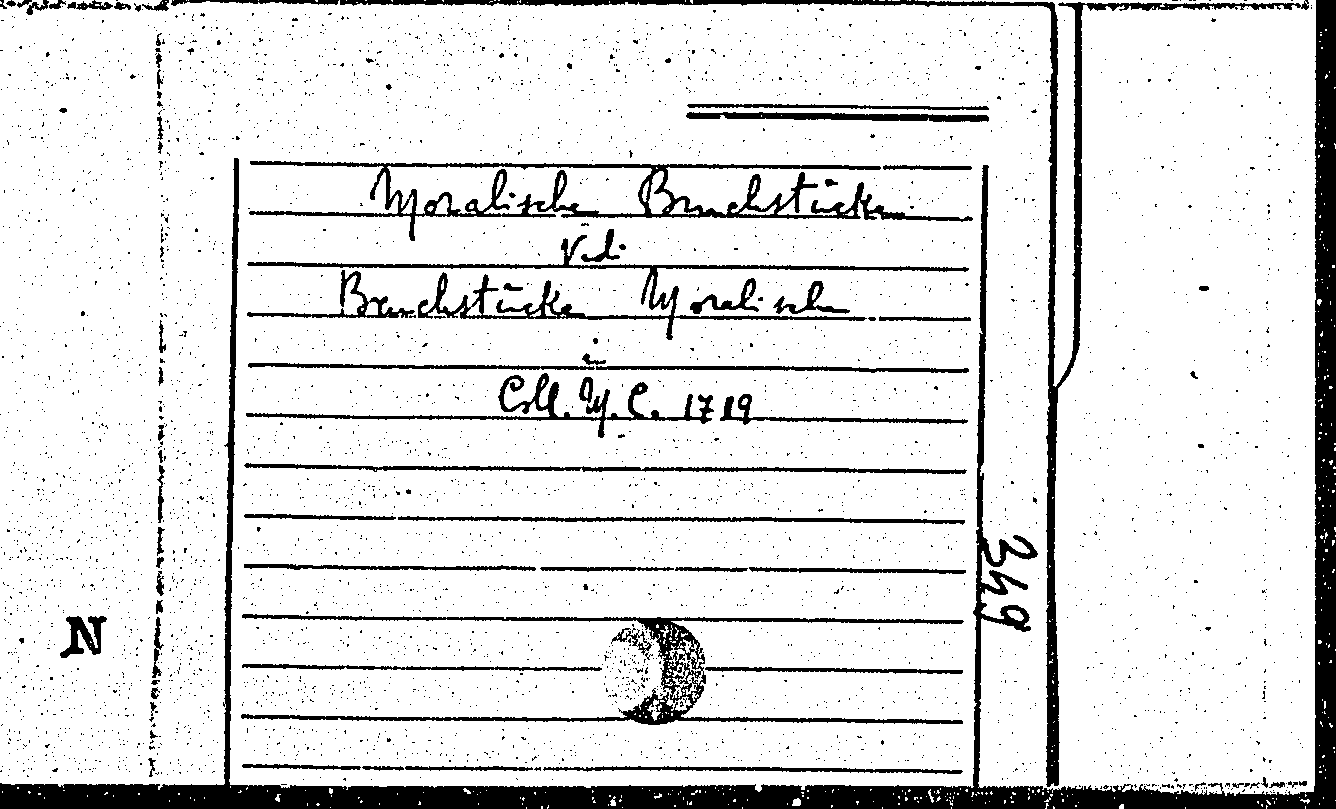 Moralische Bruchstücke
Vidi
Bruchstücke Moralische
in
Coll. M. C. 1719
349
N